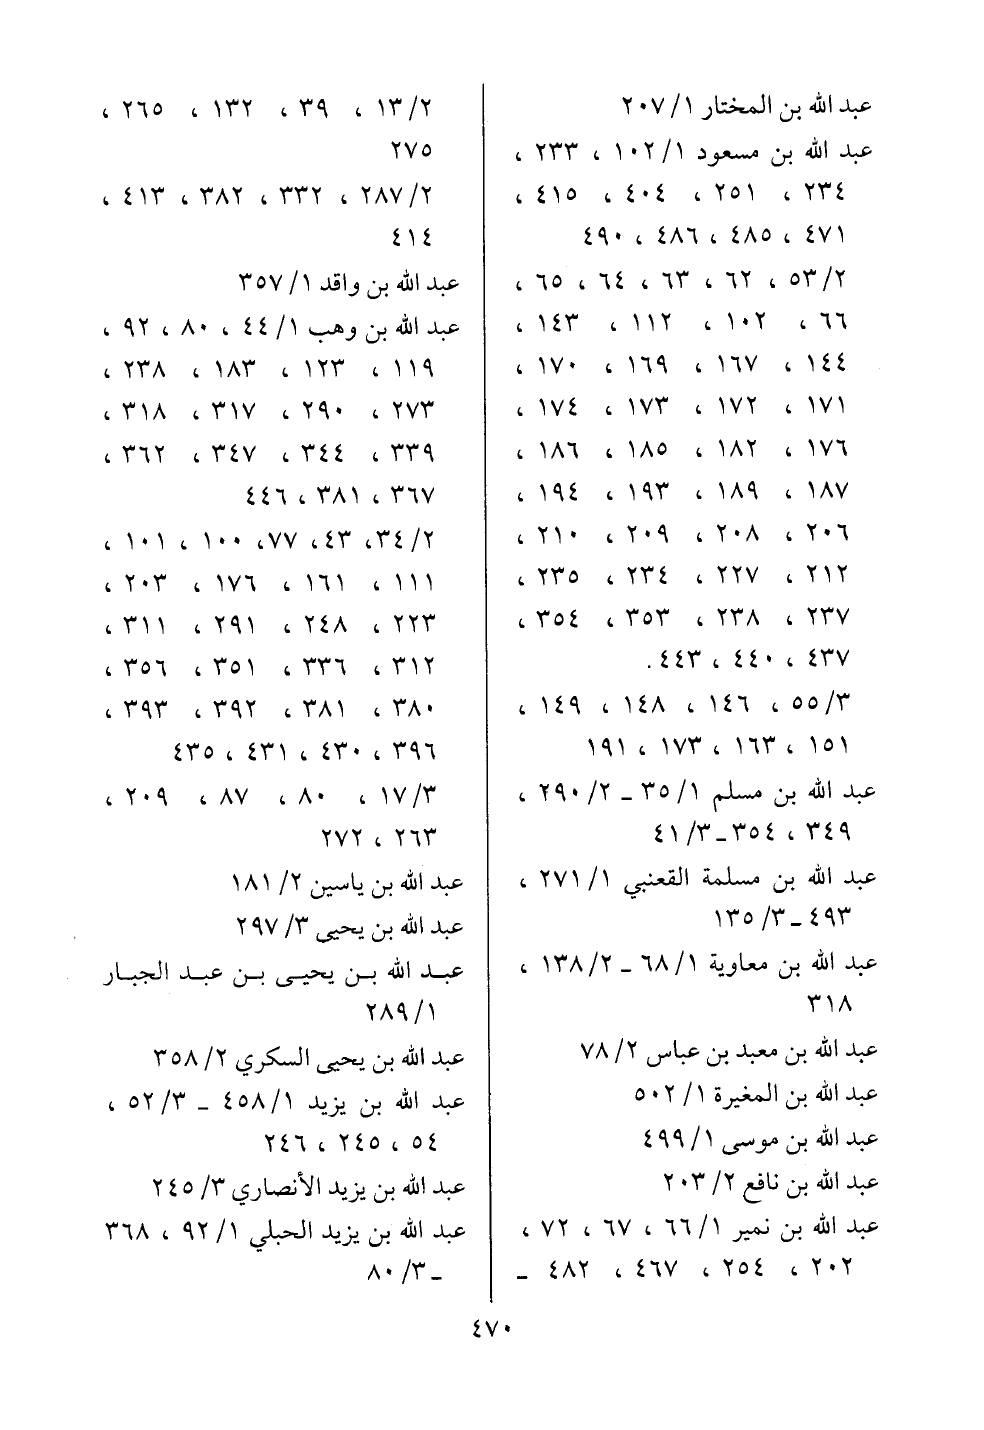 عبد الله بن المختار ١/ ٢٠٧
عبد الله بن مسعود ١/ ١٠٢ ، ٢٣٣ ،
٢٣٤ ، ٢٥١ ، ٤٠٤ ، ٤١٥ ،
٤٧١ ، ٤٨٥ ، ٤٨٦ ، ٤٩٠
٢/ ٥٣ ، ٦٢ ، ٦٣ ، ٦٤ ، ٦٥ ،
٦٦ ، ١٠٢ ، ١١٢ ، ١٤٣ ،
١٤٤ ، ١٦٧ ، ١٦٩ ، ١٧٠ ،
١٧١ ، ١٧٢ ، ١٧٣ ، ١٧٤ ،
١٧٦ ، ١٨٢ ، ١٨٥ ، ١٨٦ ،
١٨٧ ، ١٨٩ ، ١٩٣ ، ١٩٤ ،
٢٠٦ ، ٢٠٨ ، ٢٠٩ ، ٢١٠ ،
٢١٢ ، ٢٢٧ ، ٢٣٤ ، ٢٣٥ ،
٢٣٧ ، ٢٣٨ ، ٣٥٣ ، ٣٥٤ ،
٤٣٧ ، ٤٤٠ ، ٤٤٣ .
٣/ ٥٥ ، ١٤٦ ، ١٤٨ ، ١٤٩ ،
١٥١ ، ١٦٣ ، ١٧٣ ، ١٩١
عبد الله بن مسلم ١/ ٣٥ ـ ٢/ ٢٩٠ ،
٣٤٩ ، ٣٥٤ ـ ٣/ ٤١
عبد الله بن مسلمة القعنبي ١/ ٢٧١ ،
٤٩٣ ـ ٣/ ١٣٥
عبد الله بن معاوية ١/ ٦٨ ـ ٢/ ١٣٨ ،
٣١٨
عبد الله بن معبد بن عباس ٢/ ٧٨
عبد الله بن المغيرة ١/ ٥٠٢
عبد الله بن موسى ١/ ٤٩٩
عبد الله بن نافع ٢/ ٢٠٣
عبد الله بن نمير ١/ ٦٦ ، ٦٧ ، ٧٢ ،
٢٠٢ ، ٢٥٤ ، ٤٦٧ ، ٤٨٢ ـ
٢/ ١٣ ، ٣٩ ، ١٣٢ ، ٢٦٥ ،
٢٧٥
٢/ ٢٨٧ ، ٣٣٢ ، ٣٨٢ ، ٤١٣ ،
٤١٤
عبد الله بن واقد ١/ ٣٥٧
عبد الله بن وهب ١/ ٤٤ ، ٨٠ ، ٩٢ ،
١١٩ ، ١٢٣ ، ١٨٣ ، ٢٣٨ ،
٢٧٣ ، ٢٩٠ ، ٣١٧ ، ٣١٨ ،
٣٣٩ ، ٣٤٤ ، ٣٤٧ ، ٣٦٢ ،
٣٦٧ ، ٣٨١ ، ٤٤٦
٢/ ٣٤، ٤٣، ٧٧، ١٠٠ ، ١٠١ ،
١١١ ، ١٦١ ، ١٧٦ ، ٢٠٣ ،
٢٢٣ ، ٢٤٨ ، ٢٩١ ، ٣١١ ،
٣١٢ ، ٣٣٦ ، ٣٥١ ، ٣٥٦ ،
٣٨٠ ، ٣٨١ ، ٣٩٢ ، ٣٩٣ ،
٣٩٦ ، ٤٣٠ ، ٤٣١ ، ٤٣٥
٣/ ١٧ ، ٨٠ ، ٨٧ ، ٢٠٩ ،
٢٦٣ ، ٢٧٢
عبد الله بن ياسين ٢/ ١٨١
عبد الله بن يحيى ٣/ ٢٩٧
عبـد الله بـن يحيـى بـن عبـد الجبـار
١/ ٢٨٩
عبد الله بن يحيى السكري ٢/ ٣٥٨
عبد الله بن يزيد ١/ ٤٥٨ ـ ٣/ ٥٢ ،
٥٤ ، ٢٤٥ ، ٢٤٦
عبد الله بن يزيد الأنصاري ٣/ ٢٤٥
عبد الله بن يزيد الحبلي ١/ ٩٢ ، ٣٦٨
ـ ٣/ ٨٠
٤٧٠